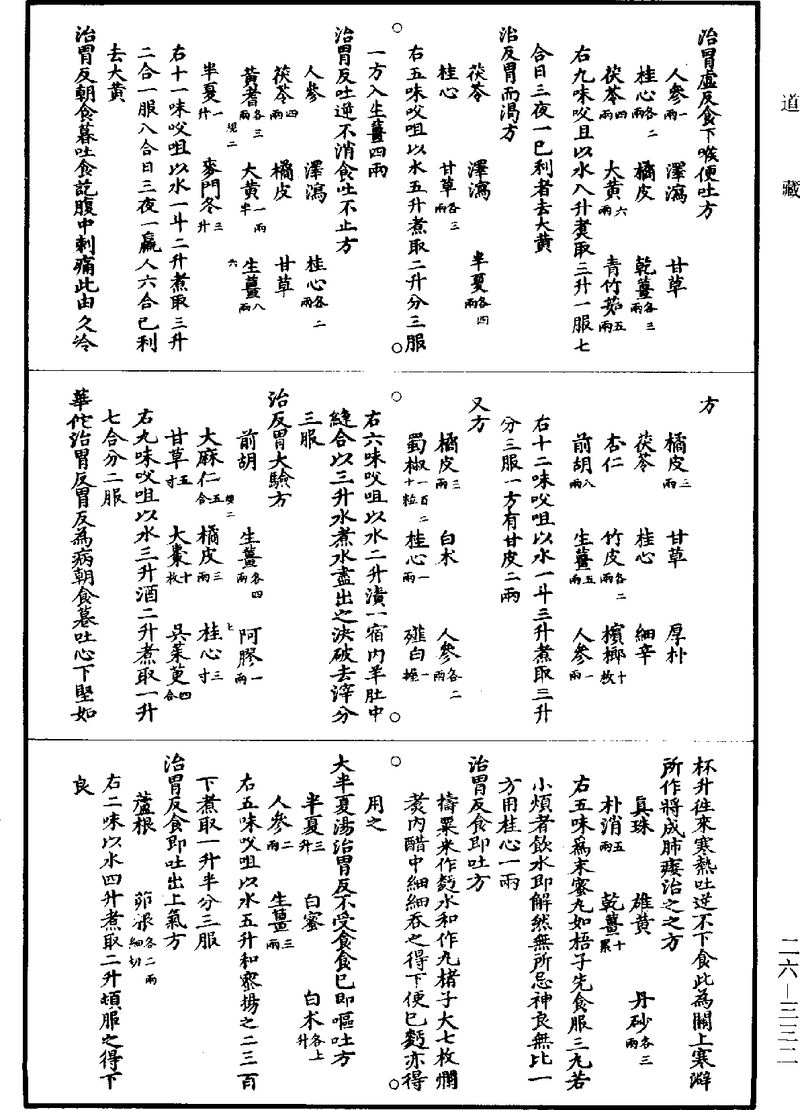 道藏
治胃虛反食下喉便吐方
人參一兩 澤瀉 甘草
桂心各二兩 橘皮 乾薑各三兩
茯苓四兩 大黃六兩 青竹茹五兩
右九味㕮咀以水八升煮取三升一服七
合日三夜一已利者去大黃
治反胃而渴方
茯苓 澤瀉 半夏各四兩
桂心 甘草各三兩
右五味㕮咀以水五升煮取二升分三服
一方入生薑四兩
治胃反吐逆不消食吐不止方
人參 澤瀉 桂心各二兩
茯苓四兩 橘皮 甘草
黃耆各三兩 大黃一兩半 生薑八兩
半夏一升 麥門冬三升
右十一味㕮咀以水一斗二升煮取三升
二合一服八合日三夜一羸人六合已利
去大黃
治胃反朝食暮吐食訖腹中刺痛此由久冷
方
橘皮三兩 甘草 厚朴
茯苓 桂心 細辛
杏仁 竹皮各二兩 檳榔十枚
前胡八兩 生薑五兩 人參一兩
右十二味㕮咀以水一斗三升煮取三升
分三服一方有甘皮二兩
又方
橘皮三兩 白朮 人參各二兩
蜀椒一百二十粒 桂心一兩 薤白一握
右六味㕮咀以水二升漬一宿內羊肚中
縫合以三升水煮水盡出之決破去滓分
三服
治反胃大驗方
前胡 生薑各四兩 阿膠一兩
大麻仁五合 橘皮三兩 桂心三寸
甘草五寸 大棗十枚 吳茱萸四合
右九味㕮咀以水三升酒二升煮取一升
七合分二服
華佗治胃反胃反為病朝食暮吐心下堅如
杯升往來寒熱吐逆不下食此為關上寒澼
所作將成肺痿治之之方
真珠 雄黃 丹砂各三兩
朴消五兩 乾薑十累
右五味為末蜜丸如梧子先食服三丸若
小煩者飲水即解然無所忌神良無比一
方用桂心一兩
治胃反食即吐方
擣粟米作麪水和作丸楮子大七枚爛
煮內醋中細細吞之得下便已麪亦得
用之
大半夏湯治胃反不受食食已即嘔吐方
半夏三升 白蜜 白朮各上升
人參二兩 生薑三兩
右五味㕮咀以水五升和蜜揚之二三百
下煮取一升半分三服
治胃反食即吐出上氣方
蘆根 茆根各二兩細切
右二味以水四升煮取二升頓服之得下
良
二六—三三二